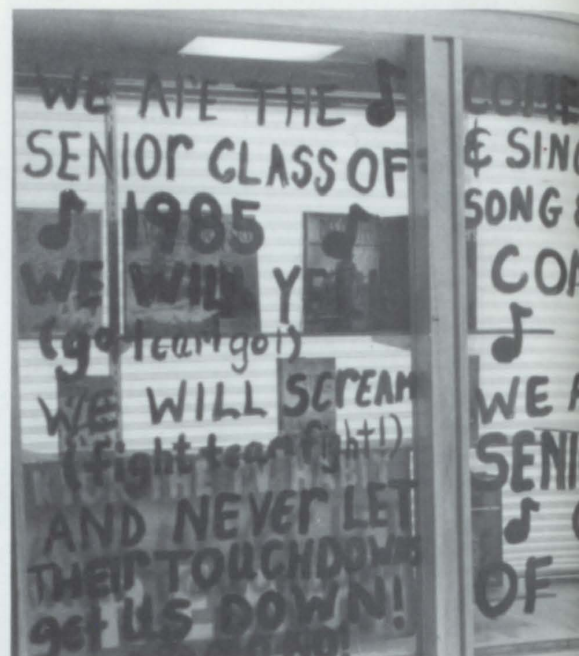 WE ArE THE
SENIOr CLASS OF
1985
WE WILL
(go team go!)
WE WILL SCrEAM
(fight team fight!)
AND NEVEr LET
THEIr TOUCHDOWNS
get US DOWN!
COME
& SING
SONG
WE
OF